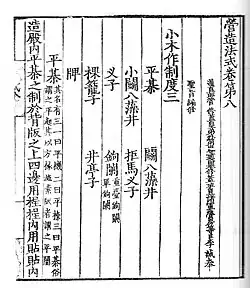 營造法式卷第八
通直郎管修蓋皇弟外第專一提舉修蓋班直諸軍營房等臣李誡奉
聖旨編修
小木作制度三
平棊 鬭八藻井
小鬭八藻井 拒馬叉子
叉子 鉤闌 重臺鉤闌 單鉤闌
棵籠子 井亭子
牌
平棊 其名有三一曰平機二曰平橑三曰平棊俗謂之平起其以方椽施素版者謂之平闇
造殿內平棊之制於背版之上四邊用桯桯內用貼貼內